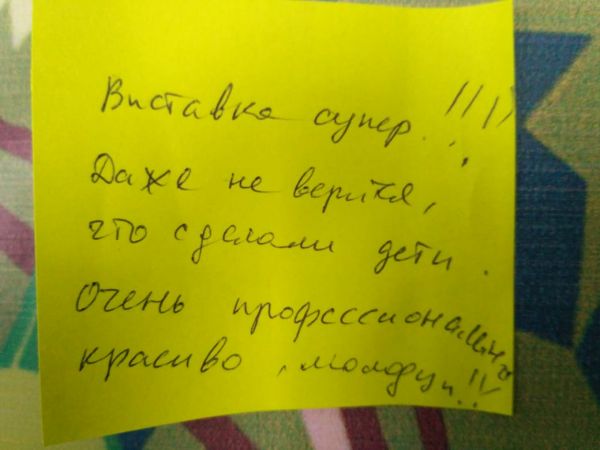 Виставка супер!!!!
Даже не верится,
что сделали дети.
Очень профссионально
красиво, молодцы!!!